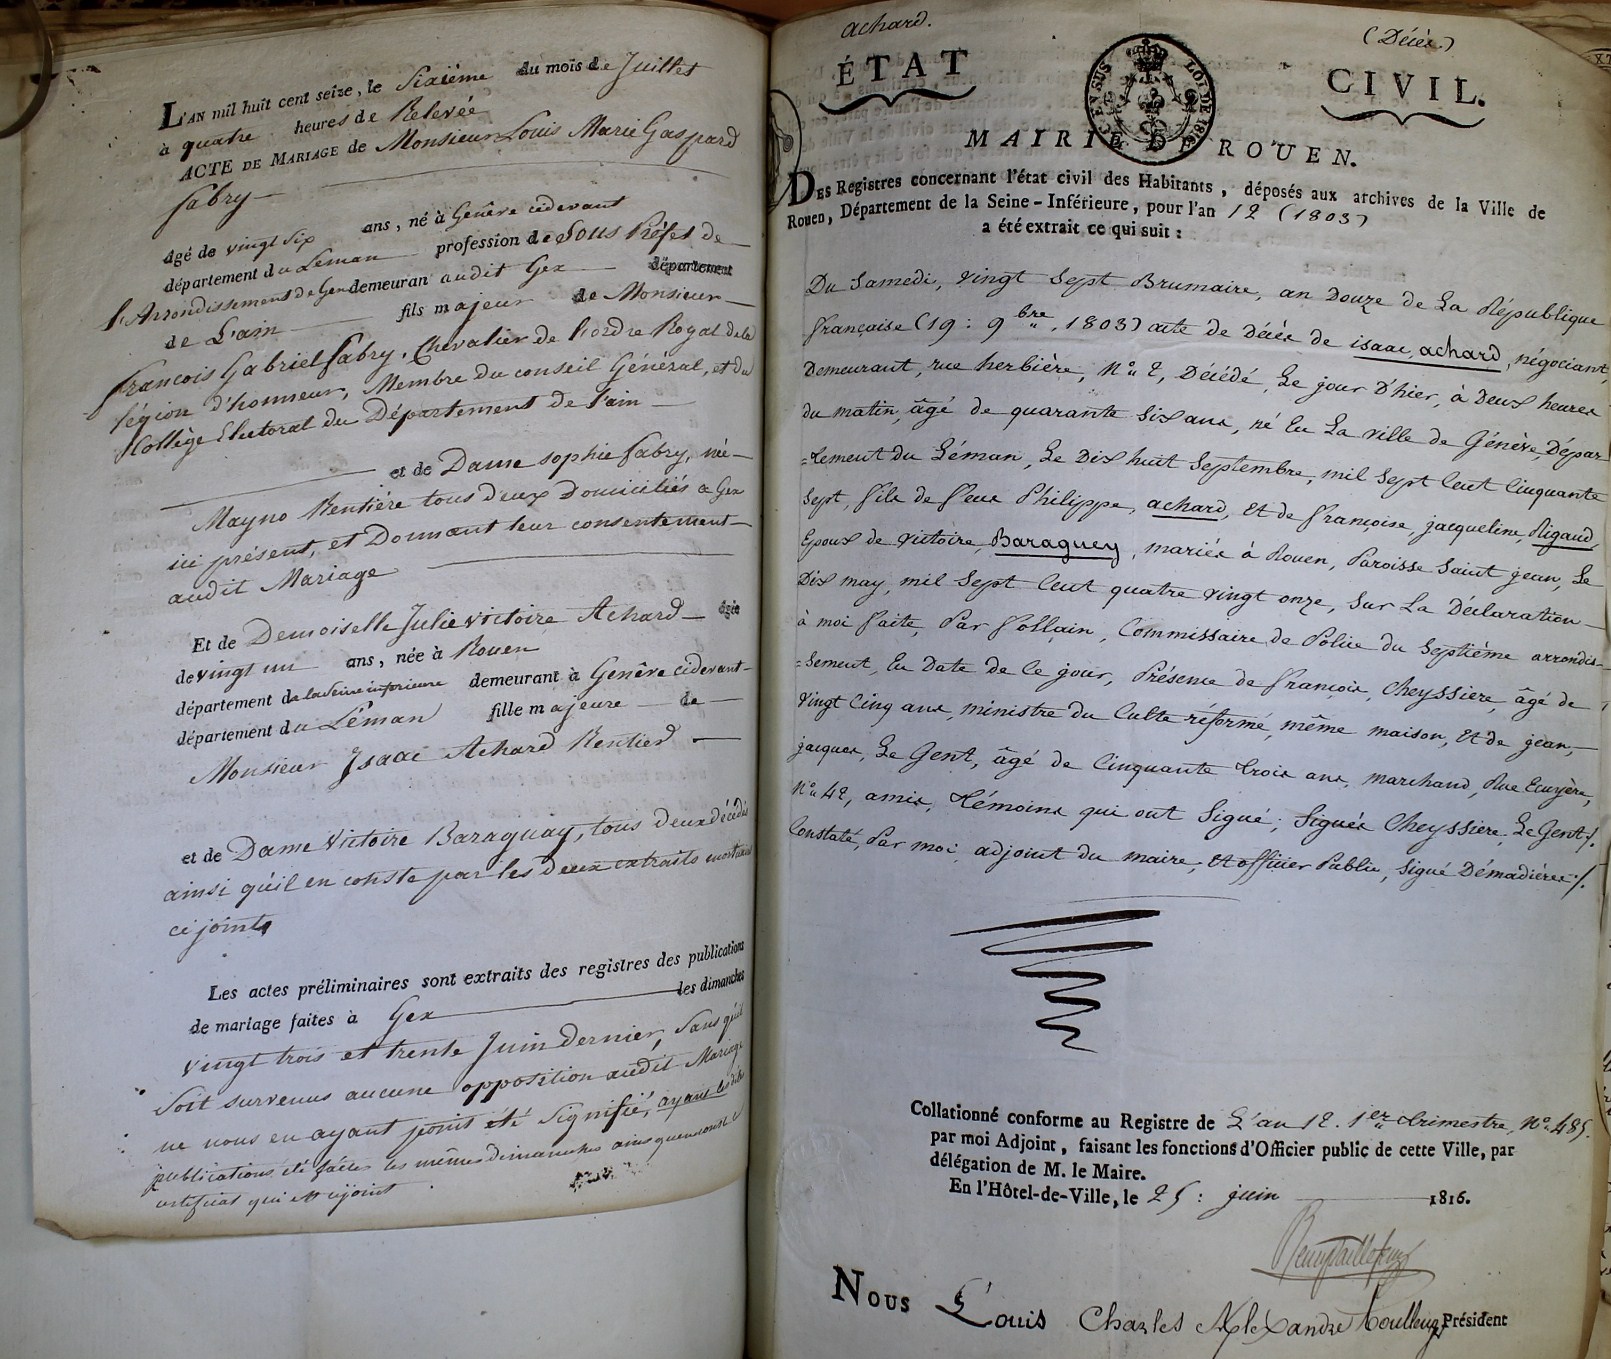 L'AN mil huit cent seize, le Sixième du mois de Juillet
à quatre heures de Relevée
ACTE DE MARIAGE de Monsieur Louis Marie Gaspard
fabry
âgé de vingt Six ans, né à Genêve cidevant
département du Léman profession de Sous Préfet de
l'Arrondissement de Gex demeuran audit Gex département
de L'ain fils majeur de Monsieur
francois Gabriel fabry, Chevalier de l'ordre Royal de la
légion d'honneur, Membre du conseil Général, et du
Collège Electoral du Département de l'ain
et de Dame sophie fabry, née
Mayno Rentière tous deux Domiciliés a Gex
ici présent, et Donnant leur consentement
audit Mariage
Et de Demoiselle Julie victoire Achard âgée
de vingt un ans, née à Rouen
département de la Seine inferieure demeurant à Genêve cidevant
département du Léman fille majeure de
Monsieur Isaac Achard Rentier
et de Dame Victoire Baraguay, tous deux décédés
ainsi qu'il en conste par les deux extraits mortuaires
ci joints
Les actes préliminaires sont extraits des registres des publications
de mariage faites à Gex les dimanches
vingt trois et trente Juin dernier, Sans qu'il
Soit survenus aucune opposition audit Mariage
ne nous en ayant point été Signifié, ayant les dites
publications été faites les mêmes dimanches ainsi qu'en conste le
certificat qui est cijoint
achard.
(Décès.)
ÉTAT CIVIL.
C. ENSUS LOI DE 1816
MAIRIE DE ROUEN.
DES Registres concernant l'état civil des Habitants, déposés aux archives de la Ville de
Rouen, Département de la Seine-Inférieure, pour l'an 12 (1803)
a été extrait ce qui suit :
Du Samedi, vingt Sept Brumaire, an Douze de La République
française (19: 9bre. 1803) acte de Décès de isaac, achard, négociant,
Demeurant, rue herbière, N° 2, Décédé, Le jour D'hier, à Deux heures
du matin, âgé de quarante Six ans, né En La ville de Génève, Dépar-
=tement du Léman, Le Dix huit Septembre, mil Sept Cent Cinquante
Sept, fils de feux Philippe, achard, Et de françoise, jacqueline, Rigaud,
Epoux de victoire, Baraguey, mariés à Rouen, Paroisse Saint jean, Le
Dix may, mil Sept Cent quatre vingt onze, Sur La Déclaration
à moi faite, Par follain, Commissaire de Police du Septième arrondis-
=sement, En Date de Ce jour, Présence de françois, Cheyssiere, âgé de
vingt Cinq ans, ministre du Culte réformé, même maison, Et de jean,
jacques, Le Gent, âgé de Cinquante trois ans, marchand, Rue Ecuyère,
N° 42, amis, Témoins qui ont Signé; Signés Cheyssière, Le Gent./.
Constaté, Par moi, adjoint du maire, Et officier Public, Signé Démadières./.
Collationné conforme au Registre de L'an 12. 1er trimestre, N° 485.
par moi Adjoint, faisant les fonctions d'Officier public de cette Ville, par
délégation de M. le Maire.
En l'Hôtel-de-Ville, le 25: juin 1816.
Nous Louis Charles Alexandre Président